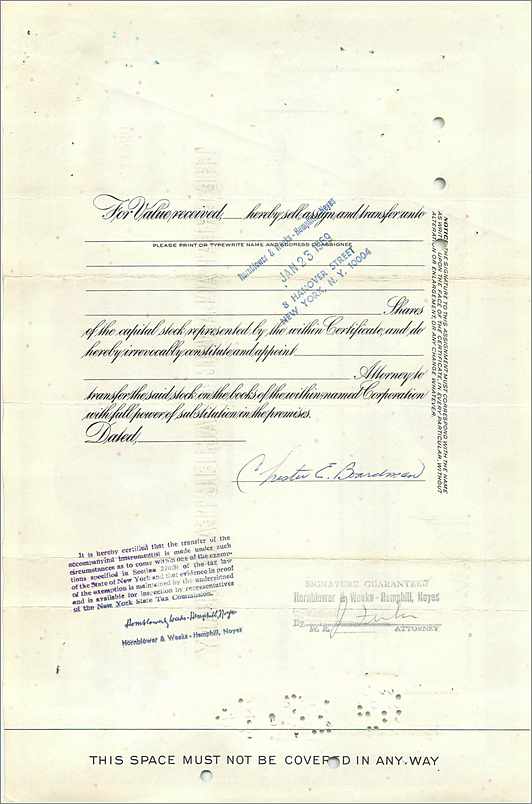 For Value received, hereby sell, assign and transfer unto
PLEASE PRINT OR TYPEWRITE NAME AND ADDRESS OF ASSIGNEE
Hornblower & Weeks - Hemphill, Noyes
JAN 23 1969
8 HANOVER STREET
NEW YORK, N. Y. 10004
Shares
of the capital stock represented by the within Certificate, and do
hereby irrevocably constitute and appoint
Attorney to
transfer the said stock on the books of the within named Corporation
with full power of substitution in the premises.
Dated,
Chester E. Boardman
NOTICE: THE SIGNATURE TO THIS ASSIGNMENT MUST CORRESPOND WITH THE NAME
AS WRITTEN UPON THE FACE OF THE CERTIFICATE, IN EVERY PARTICULAR, WITHOUT
ALTERATION OR ENLARGEMENT, OR ANY CHANGE WHATEVER.
It is hereby certified that the transfer of the
accompanying instrument(s) is made under such
circumstances as to come within one of the exemp-
tions specified in Section of the tax law
of the State of New York and that evidence in proof
of the exemption is maintained by the undersigned
and is available for inspection by representatives
of the New York State Tax Commission.
Hornblower & Weeks - Hemphill, Noyes
Hornblower & Weeks - Hemphill, Noyes
SIGNATURE GUARANTEED
Hornblower & Weeks - Hemphill, Noyes
By
ATTORNEY
THIS SPACE MUST NOT BE COVERED IN ANY WAY